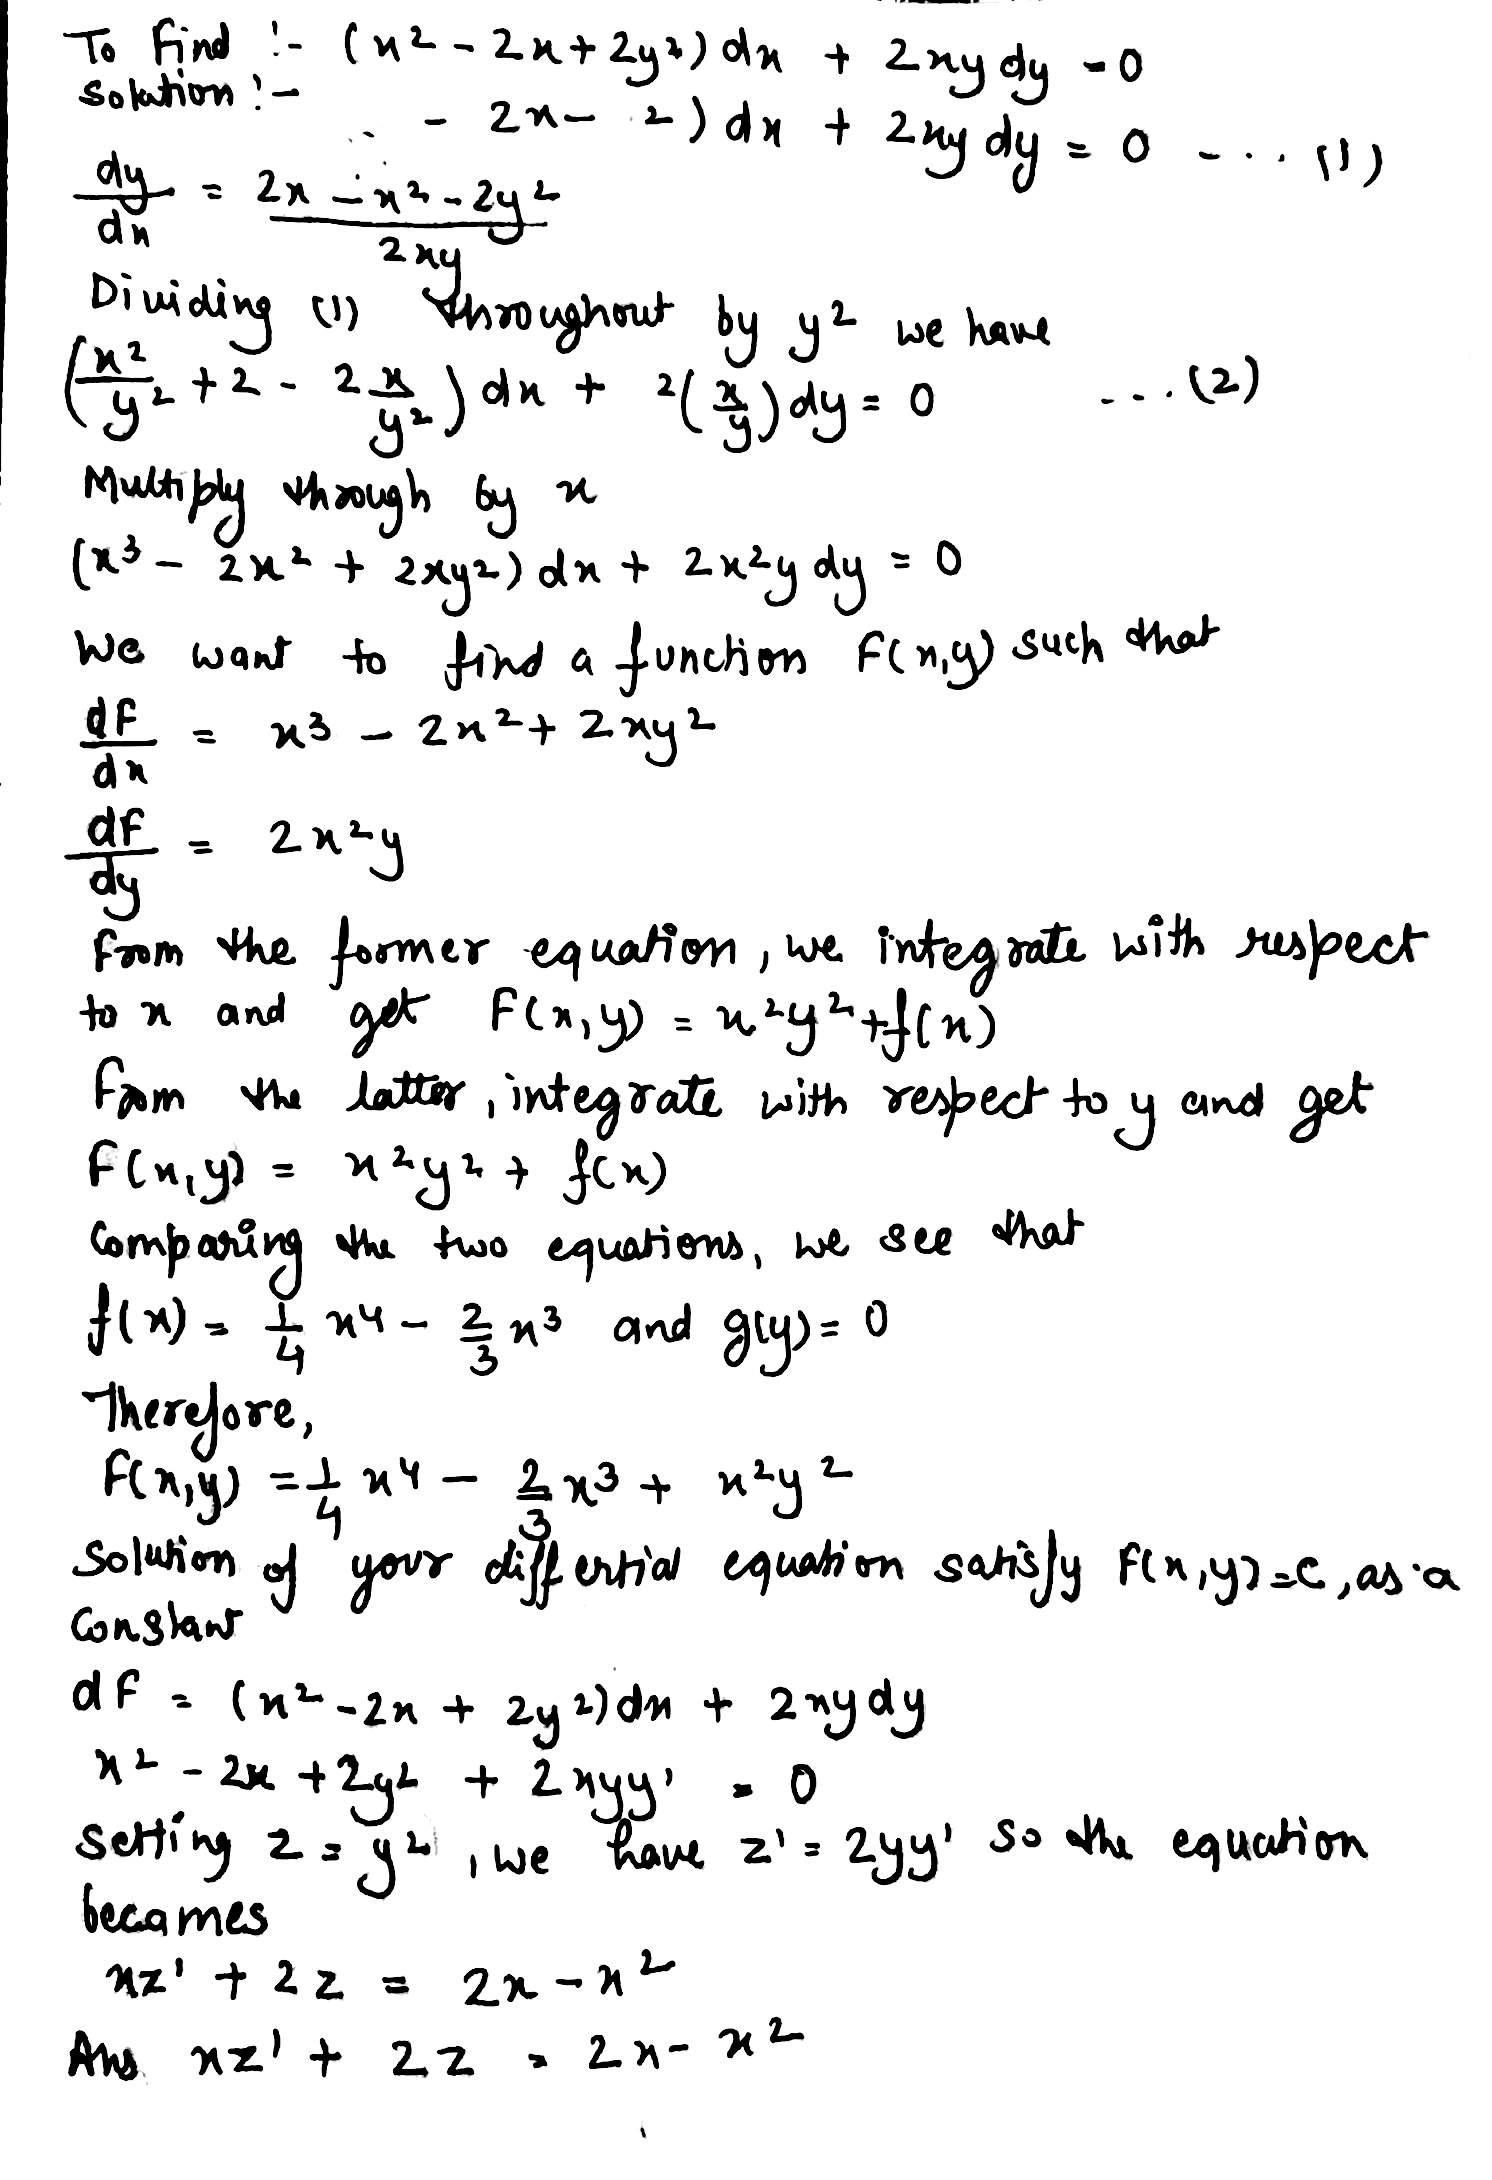 To Find :- (x² - 2x + 2y²) dx + 2xy dy = 0
Solution :-
- 2x - 2) dx + 2xy dy = 0 - ... (1)
dy/dx = (2x - x² - 2y²)/2xy
Dividing (1) throughout by y² we have
(x²/y² + 2 - 2x/y²) dx + 2(x/y) dy = 0 ... (2)
Multiply through by x
(x³ - 2x² + 2xy²) dx + 2x²y dy = 0
We want to find a function F(x,y) such that
dF/dx = x³ - 2x² + 2xy²
dF/dy = 2x²y
From the former equation, we integrate with respect
to x and get F(x,y) = x²y² + f(x)
From the latter, integrate with respect to y and get
F(x,y) = x²y² + f(x)
Comparing the two equations, we see that
f(x) = 1/4 x⁴ - 2/3 x³ and g(y) = 0
Therefore,
F(x,y) = 1/4 x⁴ - 2/3 x³ + x²y²
Solution of your differtial equation satisfy F(x,y) = C, as a
Constant
dF = (x² - 2x + 2y²) dx + 2xy dy
x² - 2x + 2y² + 2xyy' = 0
Setting z = y², we have z' = 2yy' so the equation
becames
xz' + 2z = 2x - x²
Ans. xz' + 2z = 2x - x²